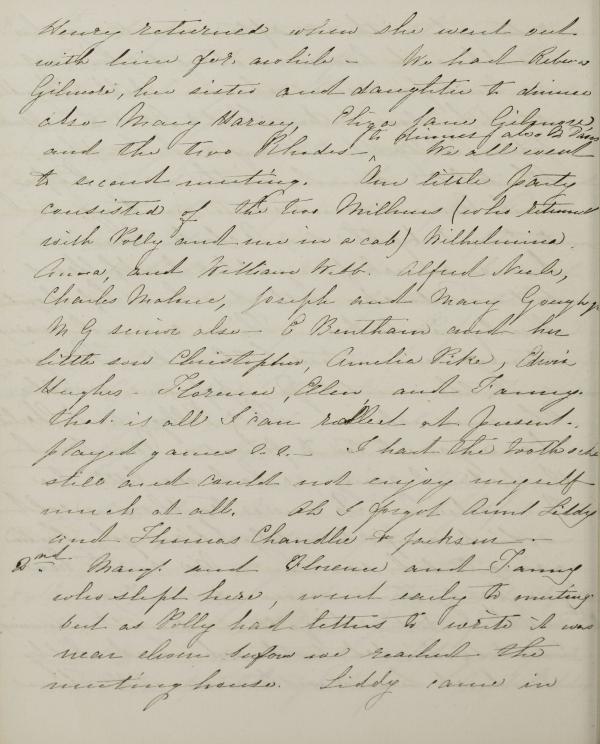 Henry returned when she went out
with him for awhile - We had Rebecca
Gilmore, her sister and daughter to dinner
also Mary Harvey, Eliza Jane Gilmore
to dinner (also
and the two Rhodes - ^ We all went
to second meeting. Our little party
consisted of the two (who returned
with Polly and me in a cab) Wilhelmina
Anna, and William Webb. Alfred Neale,
Charles Malone, Joseph and Mary Gough jr
M G senior also - E Bentham and her
little son Christopher, Amelia Pike, Edwin
Hughes - Florence, Ellen, and Fanny.
that is all I can recollect at present -
played games &.&. - I had the toothache
still and could not enjoy myself
much at all. Oh I forgot Aunt Liddy
and Thomas Chandlee & Jackson -
2nd. Mary and Florence and Fanny
who slept here, went early to meeting
but as Polly had letters to write it was
near eleven before we reached the
meeting house. Liddy came in